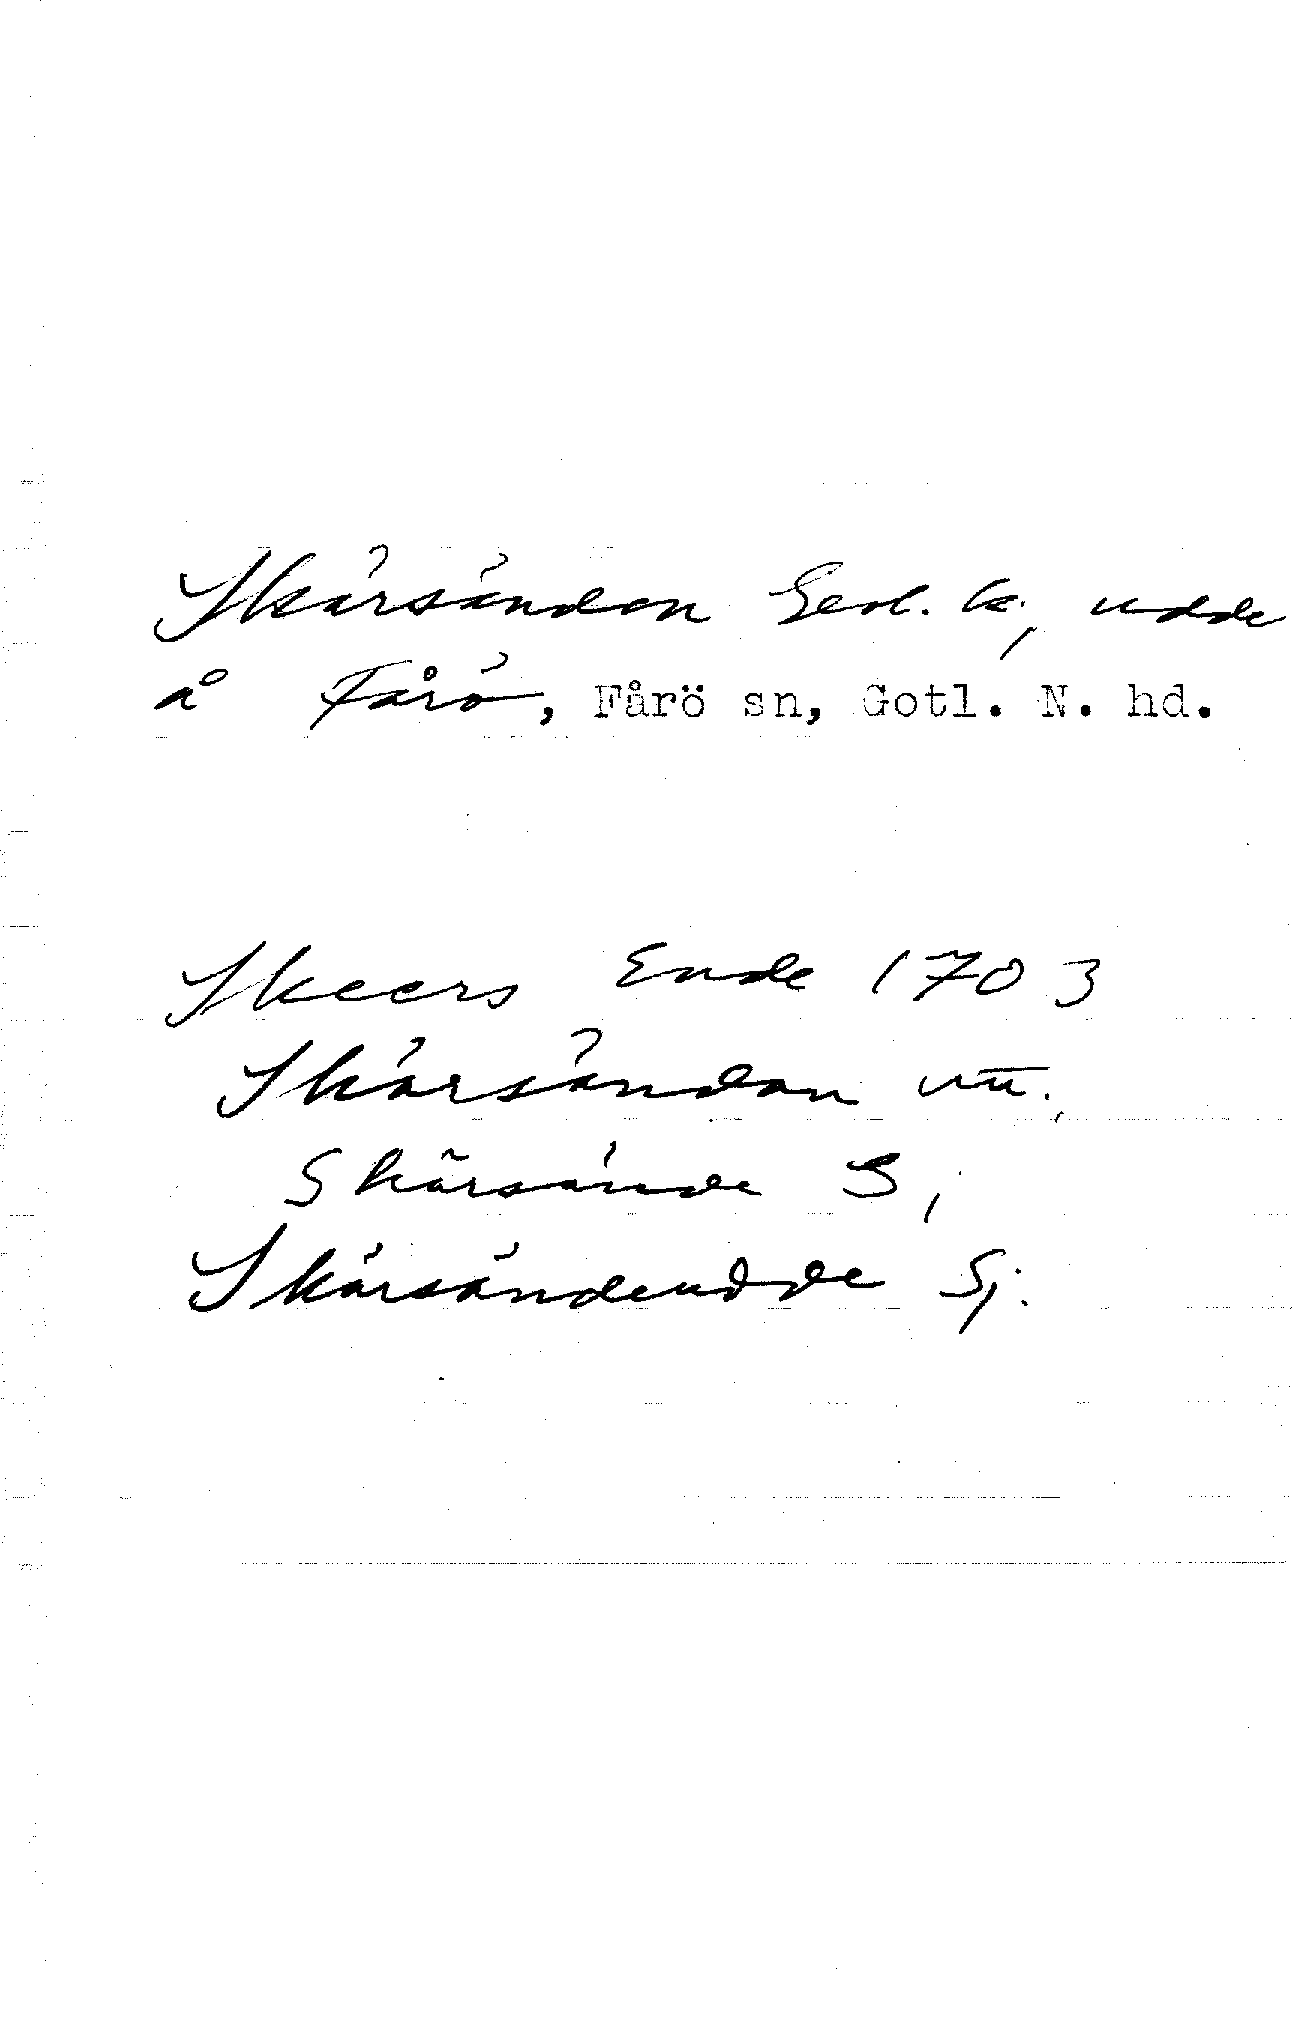 Skärsänden Geol. k, udde
å Fårö, Fårö sn, Gotl. N. hd.
Skeers Ende 1703
Skärsändan
Skärsände S,
Skärsändeudde Sj.